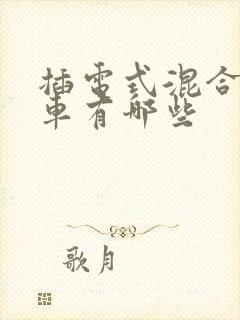 插电式混合
车有哪些
歌月